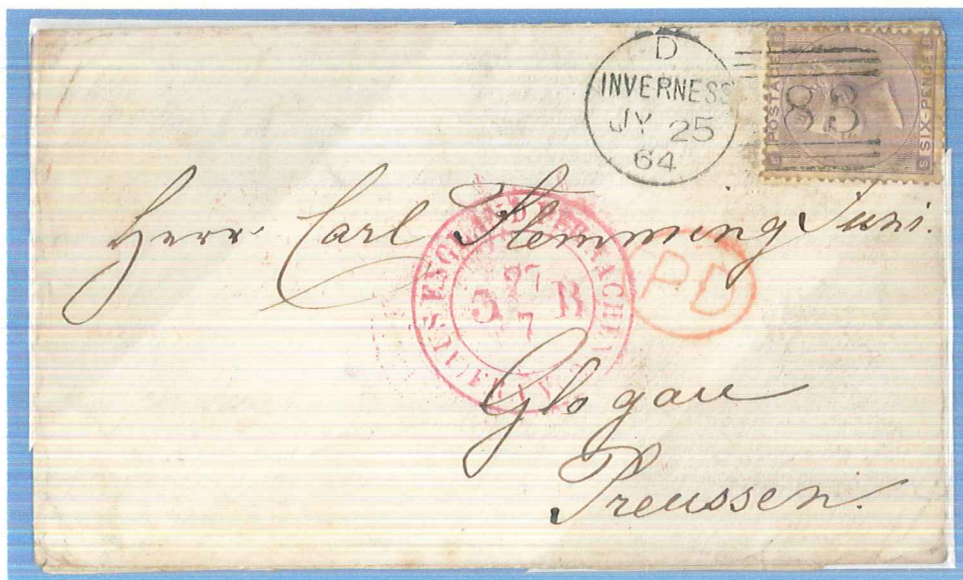 D
INVERNESS
JY 25
64
183
POSTAGE
SIX-PENCE
S
Herr Carl Flemming Juni.
PD
AUS ENGLAND PER AACHEN
27
5 B
7
FRANCO
Glogau
Preussen.